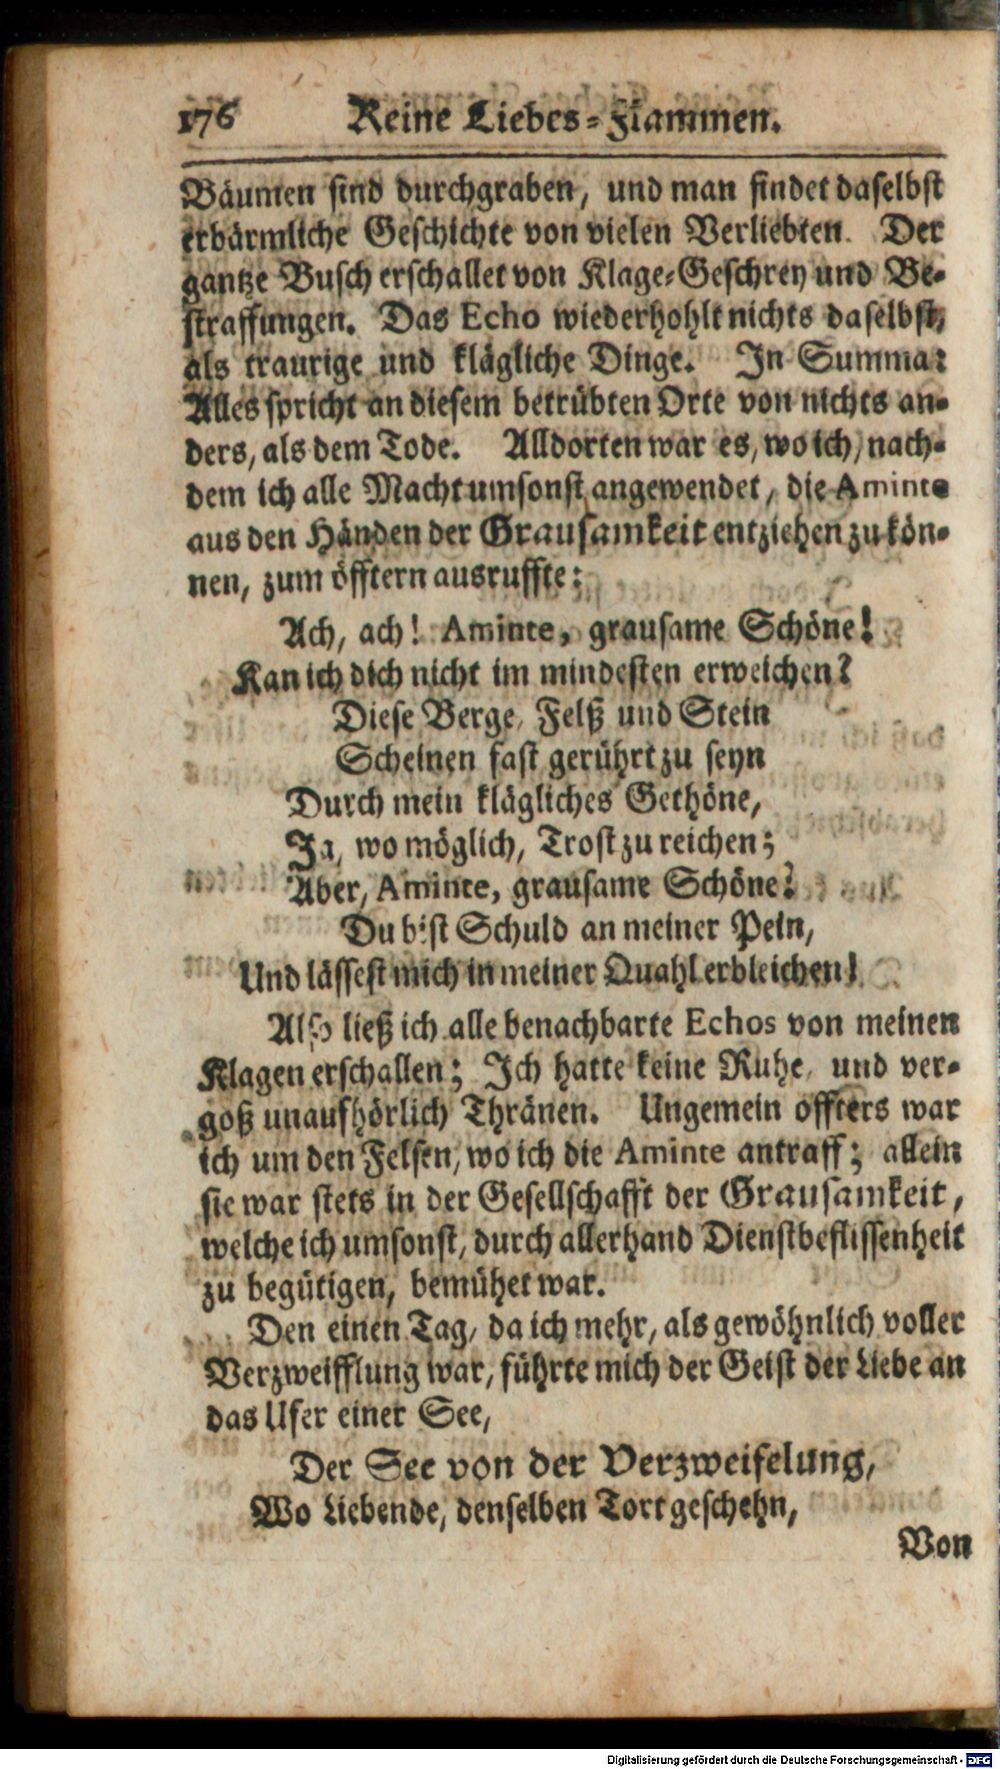 176 Reine Liebes-Flammen.
Bäumen sind durchgraben, und man findet daselbst
erbärmliche Geschichte von vielen Verliebten. Der
gantze Busch erschallet von Klage-Geschrey und Be-
straffungen. Das Echo wiederhohlt nichts daselbst,
als traurige und klägliche Dinge. In Summa:
Alles spricht an diesem betrübten Orte von nichts an-
ders, als dem Tode. Alldorten war es, wo ich, nach-
dem ich alle Macht umsonst angewendet, die Aminte
aus den Händen der Grausamkeit entziehen zu kön-
nen, zum öfftern ausruffte:
Ach, ach! Aminte, grausame Schöne!
Kan ich dich nicht im mindesten erweichen?
Diese Berge, Felß und Stein
Scheinen fast gerührt zu seyn
Durch mein klägliches Gethöne,
Ja, wo möglich, Trost zu reichen;
Aber, Aminte, grausame Schöne!
Du bist Schuld an meiner Pein,
Und lässest mich in meiner Quahl erbleichen!
Also ließ ich alle benachbarte Echos von meinen
Klagen erschallen; Ich hatte keine Ruhe, und ver-
goß unaufhörlich Thränen. Ungemein offters war
ich um den Felsen, wo ich die Aminte antraff; allein
sie war stets in der Gesellschafft der Grausamkeit,
welche ich umsonst, durch allerhand Dienstbeflissenheit
zu begütigen, bemühet war.
Den einen Tag, da ich mehr, als gewöhnlich voller
Verzweifflung war, führte mich der Geist der Liebe an
das Ufer einer See,
Der See von der Verzweifelung,
Wo Liebende, denselben Tort geschehn,
Von
Digitalisierung gefördert durch die Deutsche Forschungsgemeinschaft - DFG